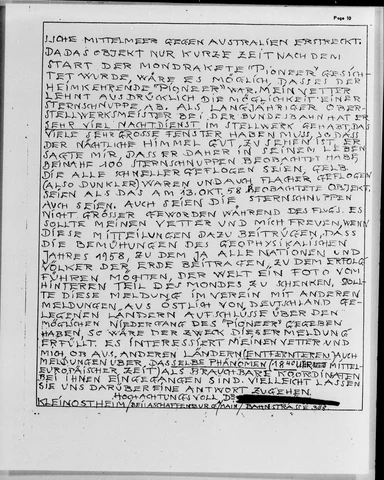 Page 10
LICHE MITTELMEER GEGEN AUSTRALIEN ERSTRECKT.
DA DAS OBJEKT NUR KURZE ZEIT NACH DEM
START DER MONDRAKETE "PIONEER" GESICH-
TET WURDE, WÄRE ES MÖGLICH, DASS ES DER
HEIMKEHRENDE "PIONEER" WAR. MEIN VETTER
LEHNT AUSDRÜCKLICH DIE MÖGLICHKEIT EINER
STERNSCHNUPPE AB. ALS LANGJÄHRIGER OBER-
STELLWERKSMEISTER BEI DER BUNDESBAHN HAT ER
SEHR VIEL NACHTDIENST IM STELLWERK GEHABT, DAS
VIELE SEHR GROSSE FENSTER HABEN MUSS, SO DASS
DER NÄCHTLICHE HIMMEL GUT ZU SEHEN IST. ER
SAGTE MIR, DASS ER DAHER IN SEINEM LEBEN
BEINAHE 400 STERNSCHNUPPEN BEOBACHTET HABE,
DIE ALLE SCHNELLER GEFLOGEN SEIEN, GELB
(ALSO DUNKLER) WAREN UND AUCH FLACHER GEFLOGEN
SEIEN ALS DAS AM 13. OKT. 58 BEOBACHTETE OBJEKT.
AUCH SEIEN DIE STERNSCHNUPPEN
NICHT GRÖSSER GEWORDEN WÄHREND DES FLUGS. ES
SOLLTE MEINEN VETTER UND MICH FREUEN, WENN
DIESE MITTEILUNGEN DAZU BEITRÜGEN, DASS
DIE BEMÜHUNGEN DES GEOPHYSIKALISCHEN
JAHRES 1958, ZU DEM JA ALLE NATIONEN UND
VÖLKER DER ERDE BEITRAGEN, ZU DEM ERFOLG
FÜHREN MÖCHTEN, DER WELT EIN FOTO VOM
HINTEREN TEIL DES MONDES ZU SCHENKEN. SOLL-
TE DIESE MELDUNG IM VEREIN MIT ANDEREN
MELDUNGEN AUS ÖSTLICH VON DEUTSCHLAND GE-
LEGENEN LÄNDERN AUFSCHLÜSSE ÜBER DEN
MÖGLICHEN NIEDERGANG DES "PIONEER" GEGEBEN
HABEN SO WÄRE DER ZWECK DIESER MELDUNG
ERFÜLLT. ES INTERESSIERT MEINEN VETTER UND
MICH, OB AUS ANDEREN LÄNDERN (ENTFERNTEREN) AUCH
MELDUNGEN ÜBER DASSELBE PHÄNOMEN (18 40 MITTEL-
EUROPÄISCHER ZEIT) ALS BRAUCHBARE KOORDINATEN
BEI IHNEN EINGEGANGEN SIND. VIELLEICHT LASSEN
SIE UNS DARÜBER EINE ANTWORT ZUGEHEN.
HOCHACHTUNGSVOLL,
KLEINOSTHEIM/BEI ASCHAFFENBURG/MAIN/BAHNSTRASSE